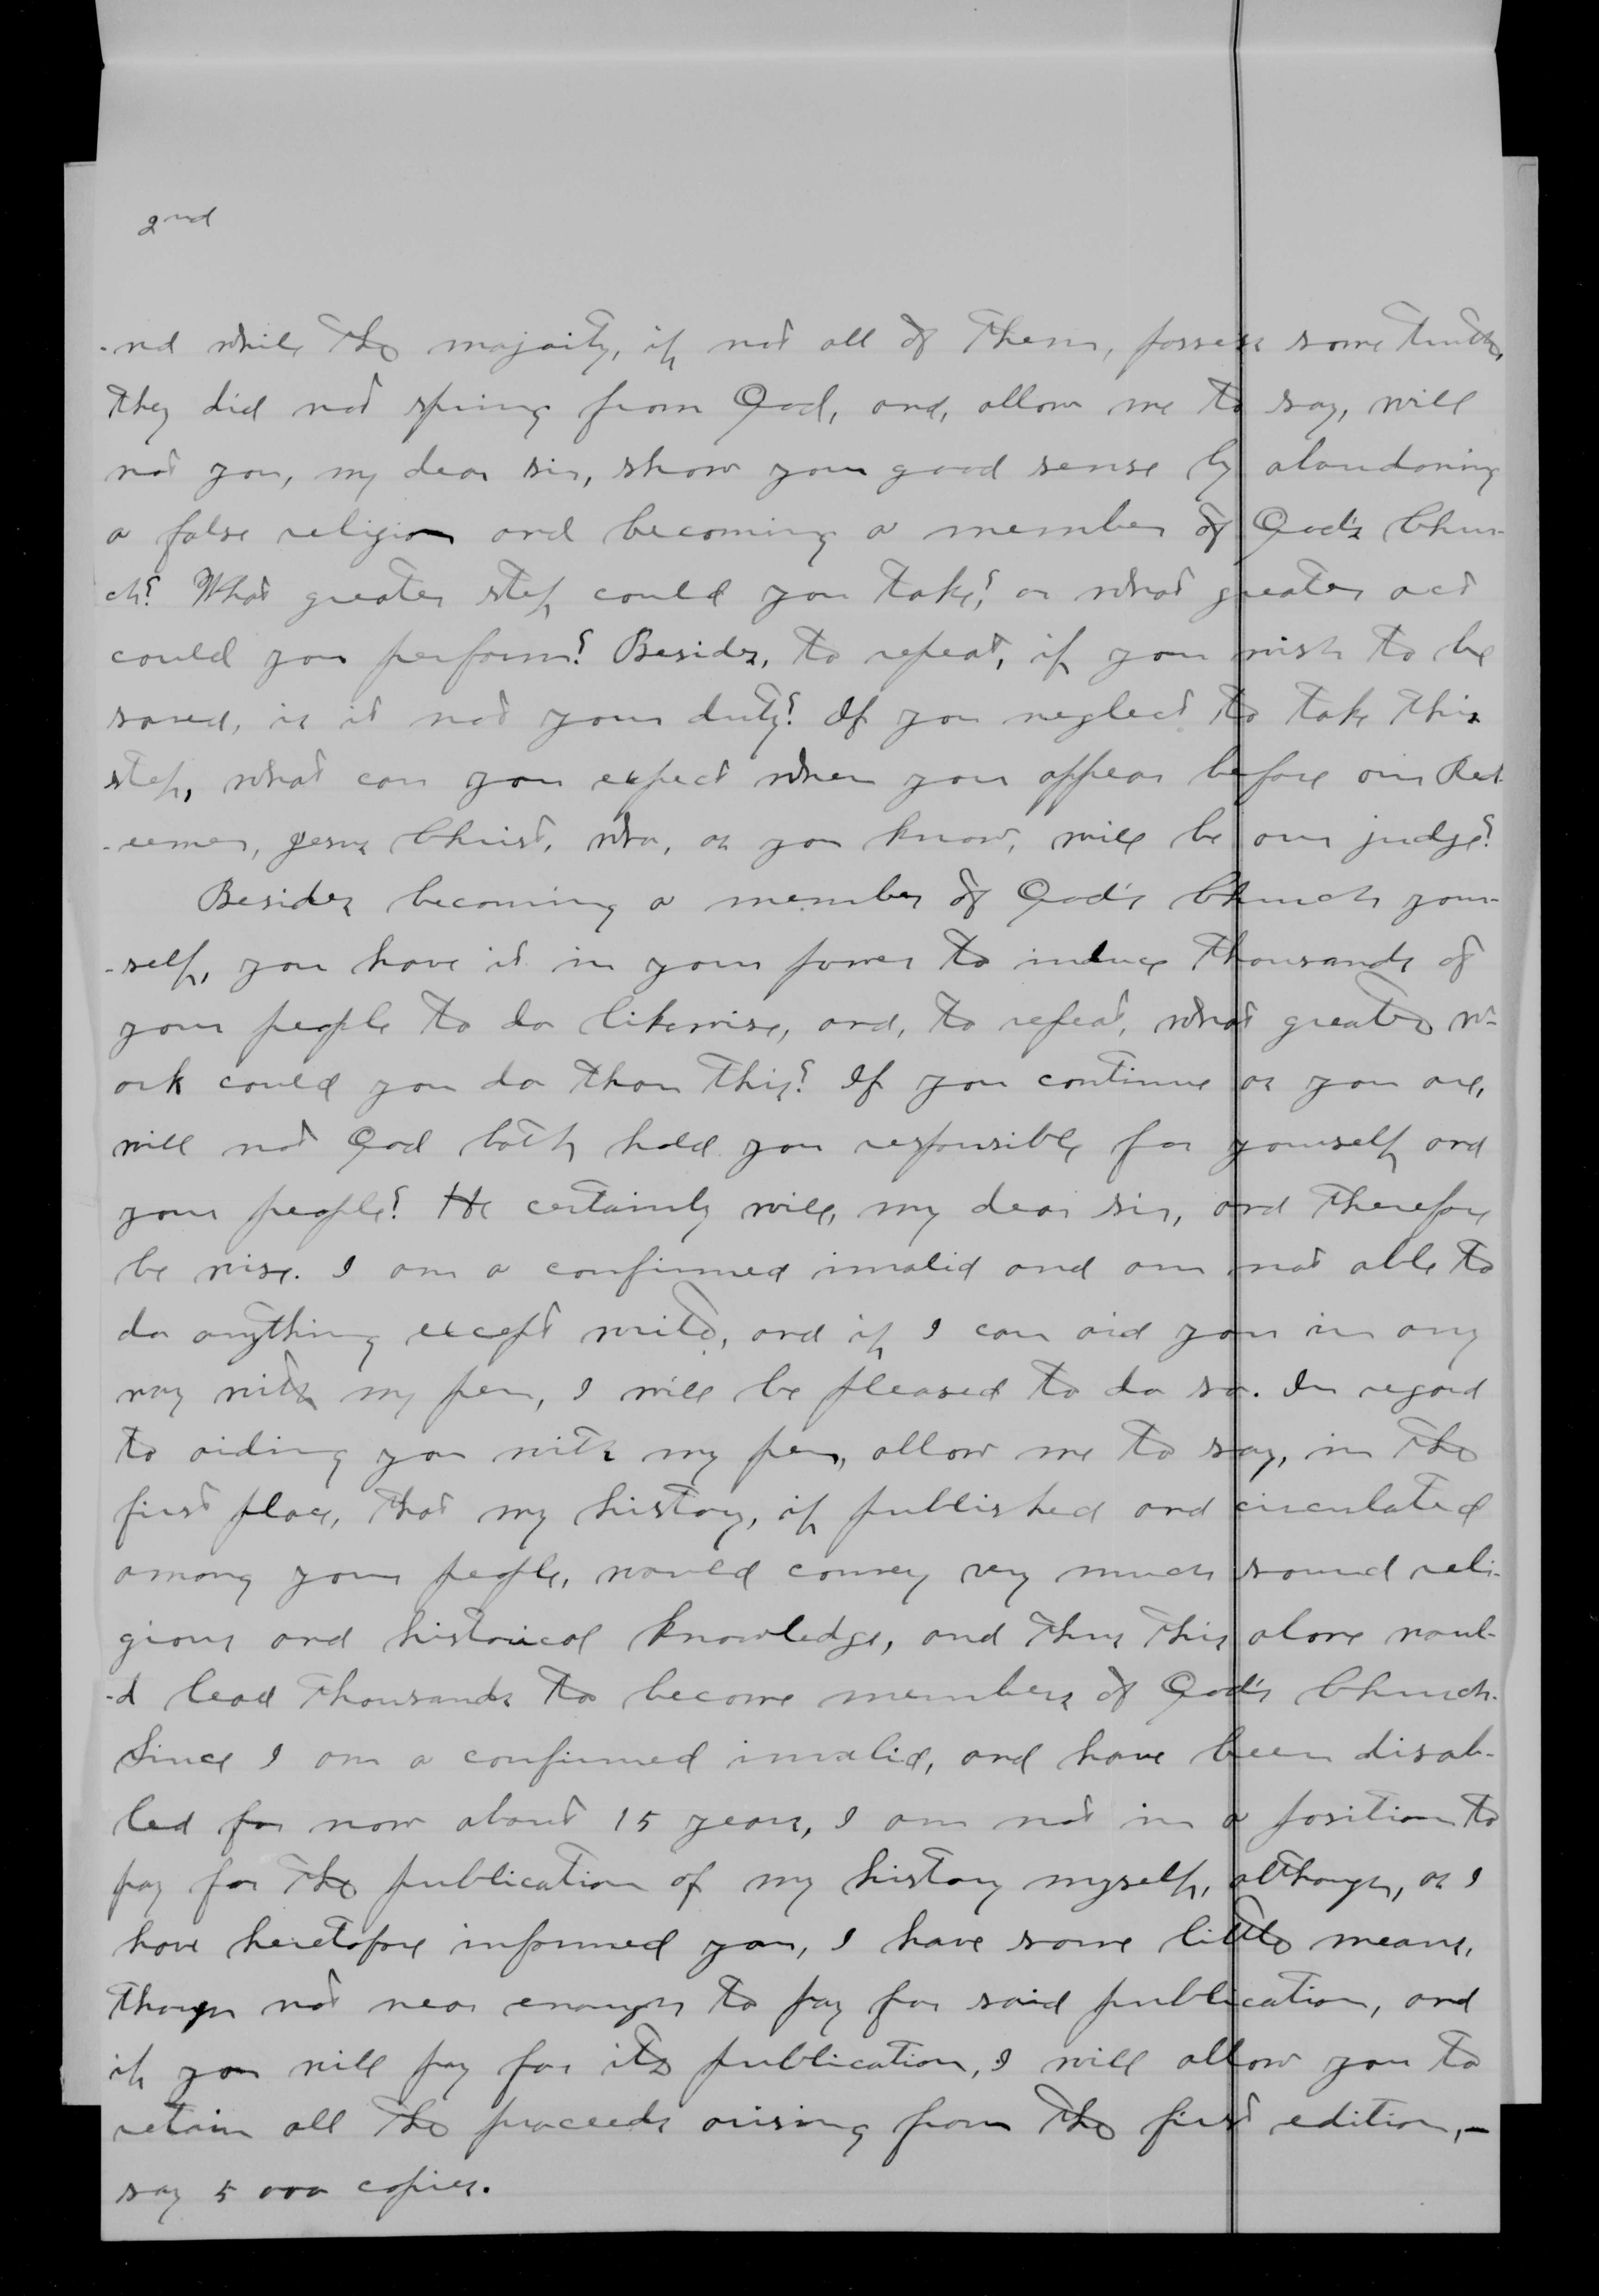 2nd
-nd while the majority, if not all of them, possess some truth,
they did not spring from God, and, allow me to say, will
not you, my dear sir, show your good sense by abandoning
a false religion and becoming a member of God's Chur-
ch? What greater step could you take? or what greater act
could you perform? Besides, to repeat, if you wish to be
saved, is it not your duty? If you neglect to take this
step, what can you expect when you appear before our Red-
-eemer, Jesus Christ, who, as you know, will be our judge?
Besides becoming a member of God's Church your-
-self, you have it in your power to induce thousands of
your people to do likewise, and, to repeat, what greater w-
ork could you do than this? If you continue as you are,
will not God both hold you responsible for yourself and
your people? He certainly will, my dear sir, and therefore
be wise. I am a confirmed invalid and am not able to
do anything except write, and if I can aid you in any
way with my pen, I will be pleased to do so. In regard
to aiding you with my pen, allow me to say, in the
first place, that my history, if published and circulated
among your people, would convey very much sound reli-
gious and historical knowledge, and thus this alone woul-
-d lead thousands to become members of God's Church.
Since I am a confirmed invalid, and have been disab-
led for now about 15 years, I am not in a position to
pay for the publication of my history myself, although, as I
have heretofore informed you, I have some little means,
though not near enough to pay for said publication, and
if you will pay for its publication, I will allow you to
retain all the proceeds arising from the first edition,-
say 5 000 copies.